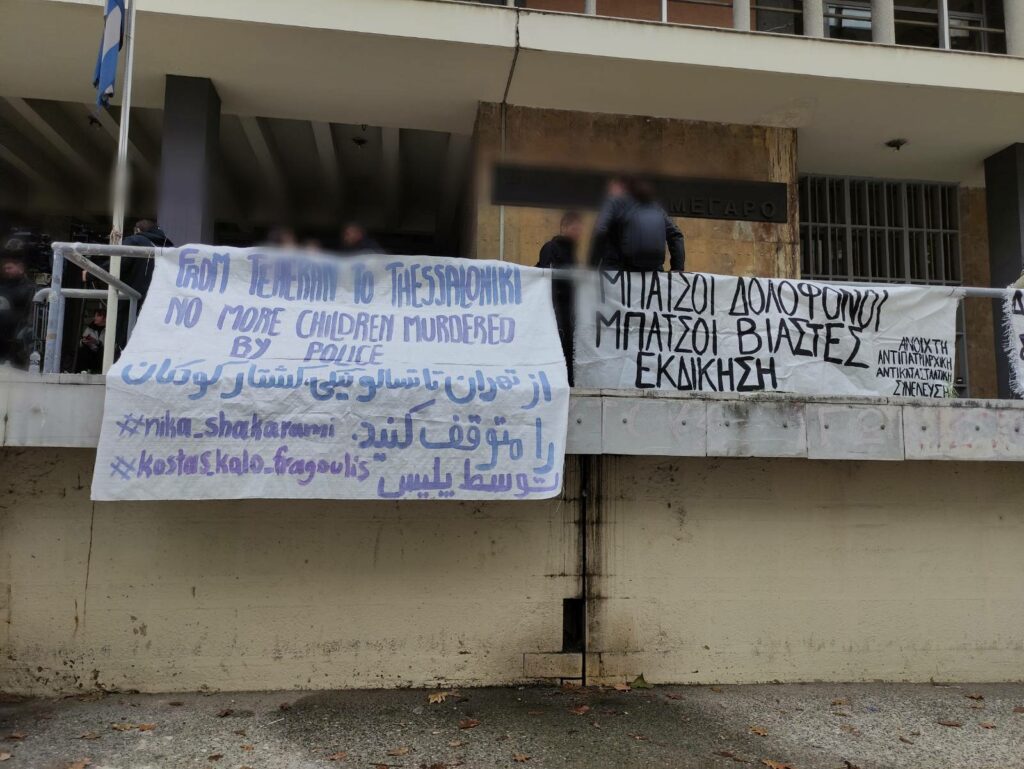 FROM TEHERAN TO THESSALONIKI
NO MORE CHILDREN MURDERED
BY POLICE
از تهران تا تسالونیکی کشتار کودکان
را متوقف کنید.
توسط پلیس
#nika_shakarami
#kostas_kalo_fragoulis
ΜΕΓΑΡΟ
ΜΠΑΤΣΟΙ ΔΟΛΟΦΟΝΟΙ
ΜΠΑΤΣΟΙ ΒΙΑΣΤΕΣ
ΕΚΔΙΚΗΣΗ
ΑΝΟΙΧΤΗ
ΑΝΤΙΠΑΤΡΙΑΡΧΙΚΗ
ΑΝΤΙΚΑΤΑΣΤΑΤΙΚΗ
ΣΥΝΕΛΕΥΣΗ